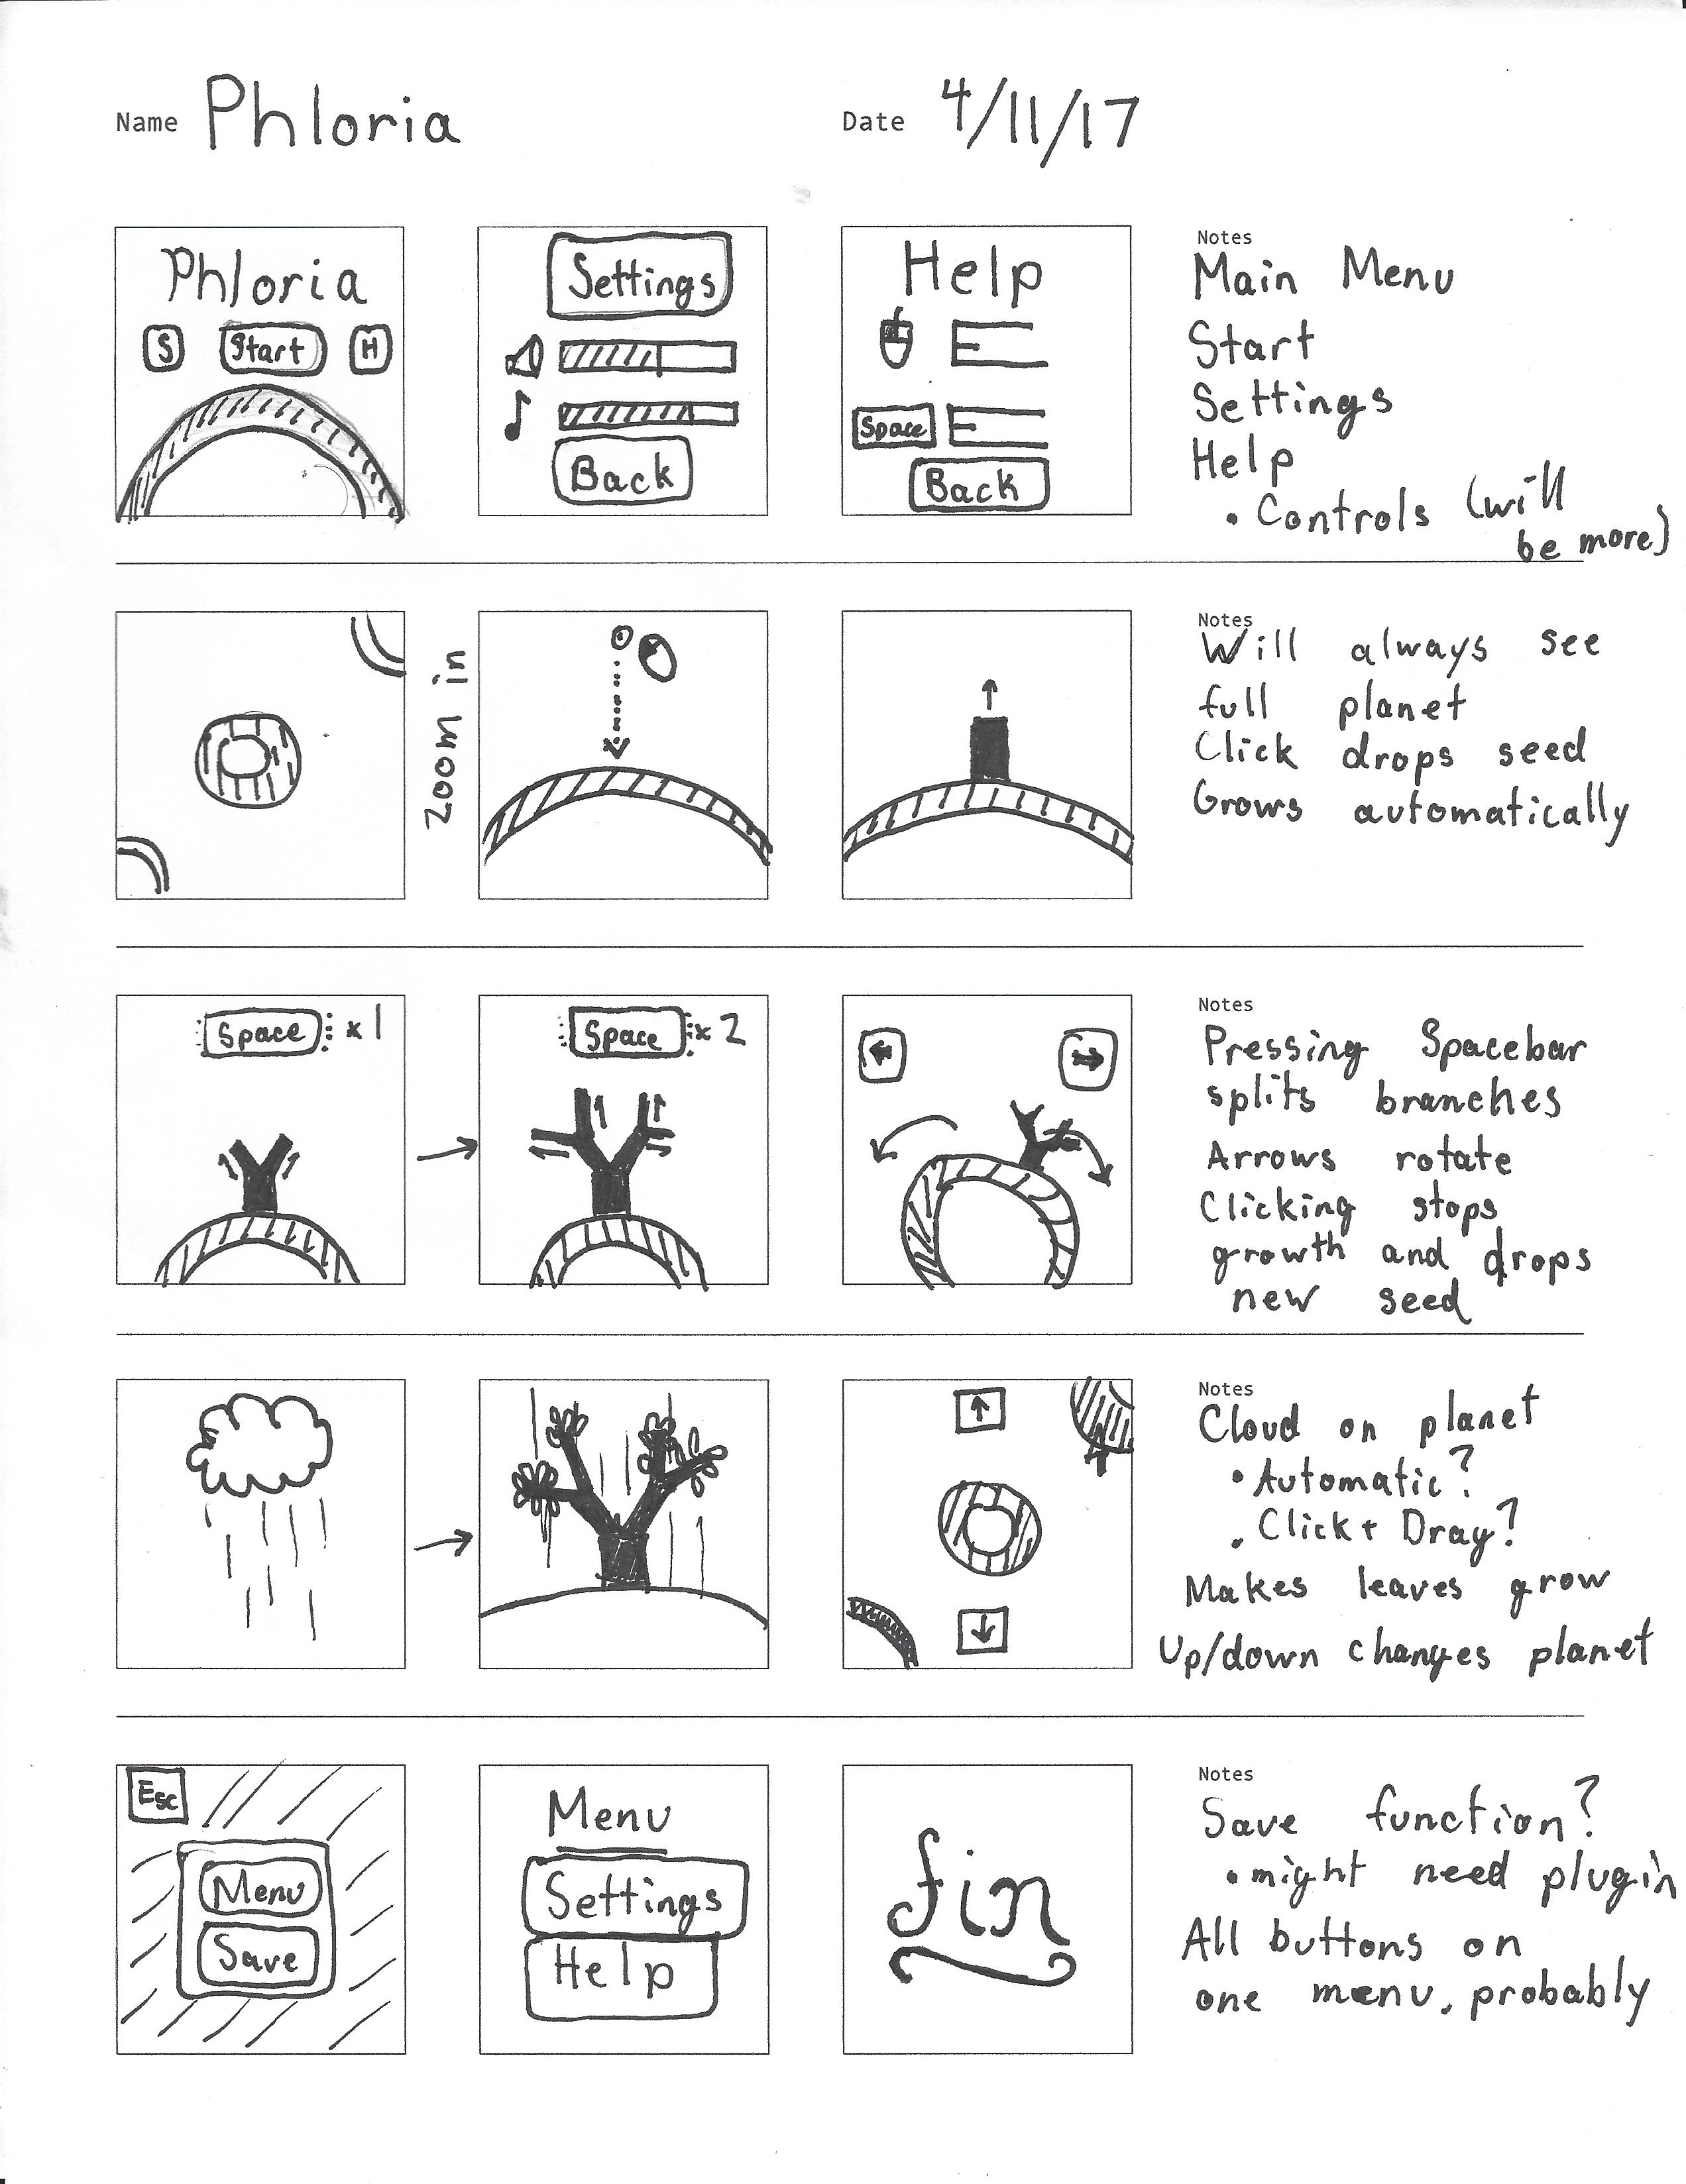 Name Phloria
Date 4/11/17
Phloria
S Start H
Settings
Back
Help
Space
Back
Notes
Main Menu
Start
Settings
Help
• Controls (will
be more)
Zoom in
Notes
Will always see
full planet
Click drops seed
Grows automatically
Space x1
Space x2
Notes
Pressing Spacebar
splits branches
Arrows rotate
Clicking stops
growth and drops
new seed
Notes
Cloud on planet
• Automatic?
• Click + Drag?
Makes leaves grow
Up/down changes planet
Esc
Menu
Save
Menu
Settings
Help
fin
Notes
Save function?
• might need plugin
All buttons on
one menu, probably